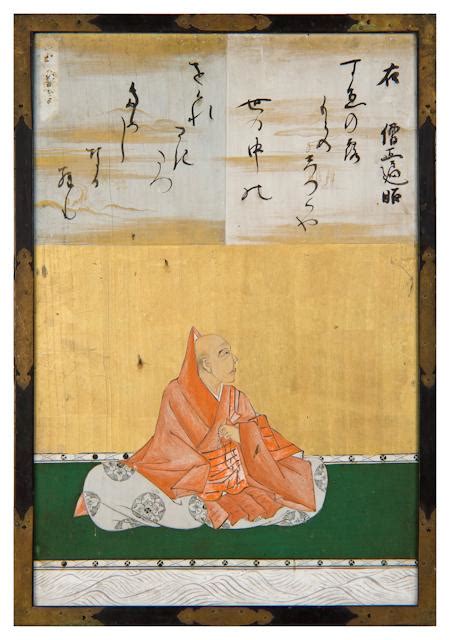 右 僧正遍昭
すゑの露
もとのしつくや
世の中の
をくれさきたつ
ためし
なる
らむ